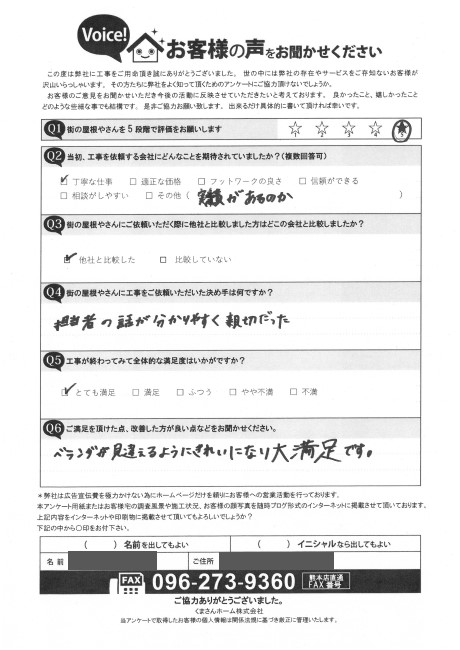 Voice!
お客様の声をお聞かせください
この度は弊社に工事をご用命頂き誠にありがとうございました。 世の中には弊社の存在やサービスをご存知ないお客様が
沢山いらっしゃいます。その方たちに弊社をよく知って頂くためのアンケートにご協力頂けないでしょうか。
お客様のご意見をお聞かせいただき今後の活動に反映させていただきたいと考えております。 良かったこと、嬉しかったこと
どのような些細な事でも結構です。 是非ご協力お願い致します。 出来るだけ具体的に書いて頂ければ幸いです。
Q1 街の屋根やさんを5段階で評価をお願いします
1 2 3 4 5
Q2 当初、工事を依頼する会社にどんなことを期待されていましたか?(複数回答可)
☑ 丁寧な仕事 □ 適正な価格 □ フットワークの良さ □ 信頼ができる
□ 相談がしやすい □ その他 ( 実績があるのか )
Q3 街の屋根やさんにご依頼いただく際に他社と比較しました方はどこの会社と比較しましたか?
☑ 他社と比較した □ 比較していない
Q4 街の屋根やさんに工事をご依頼いただいた決め手は何ですか?
担当者の話が分かりやすく親切だった
Q5 工事が終わってみて全体的な満足度はいかがですか?
☑ とても満足 □ 満足 □ ふつう □ やや不満 □ 不満
Q6 ご満足を頂けた点、改善した方が良い点などをお聞かせください。
ベランダが見違えるようにきれいになり大満足です。
*弊社は広告宣伝費を極力かけない為にホームページだけを頼りにお客様への営業活動を行っております。
本アンケート用紙またはお客様宅の調査風景や施工状況、お客様の顔写真を随時ブログ形式のインターネットに掲載させて頂いております。
上記内容をインターネットや印刷物に掲載させて頂いてもよろしいでしょうか?
下記の中から〇印をお付下さい。
( ) 名前を出してもよい ( ) イニシャルなら出してもよい
名前 ご住所
FAX 096-273-9360 熊本店直通 FAX番号
ご協力ありがとうございました。
くまさんホーム株式会社
当アンケートで取得したお客様の個人情報は関係法規に基づき厳正に管理いたします。